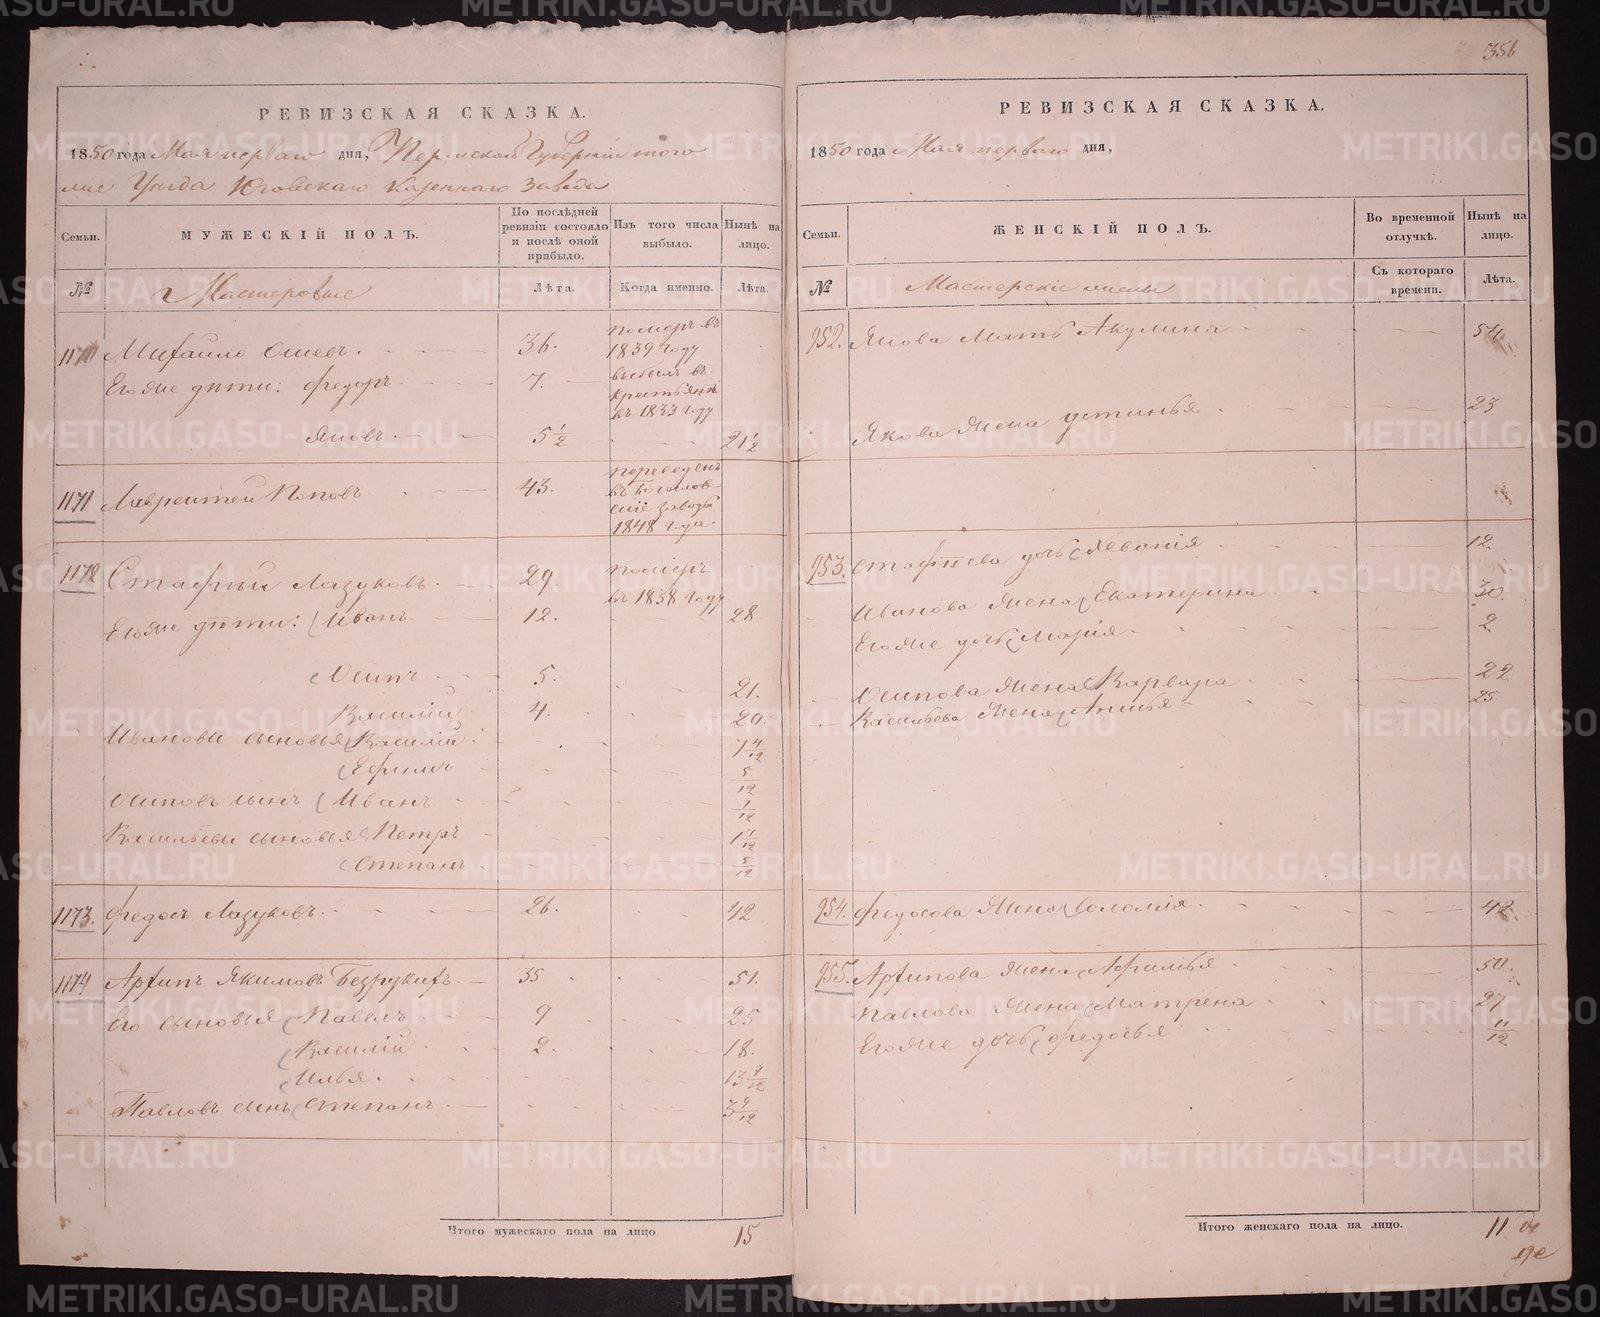 356
РЕВИЗСКАЯ СКАЗКА.
1850 года Мая перваго дня, Пермской Губернiи того
же Уезда Юговскаго казеннаго завода
Семьи.
МУЖЕСКIЙ ПОЛЪ.
По послѣдней ревизiи состояло и послѣ оной прибыло.
Изъ того числа выбыло.
Нынѣ на лицо.
№
Мастеровые
Лѣта.
Когда именно.
Лѣта.
1170 Михайло 36. померъ въ 1839 году
Его же дѣти: Федоръ 7. выбылъ въ крестьяне въ 1833 году
Яковъ 5 1/2 21 1/2
1171 Лаврентей Поповъ 43. переведенъ въ Богословскiе заводы 1848 года.
1172 Стафiй Лазуковъ 29. померъ въ 1838 году
Его же дѣти: Иванъ 12. 28
Осипъ 5. 21.
Василiй 4. 20.
Ивановы сыновья Василiй
Ефимъ 5/12
Осиповъ сынъ Иванъ 1/12
Васильевы сыновья Петръ
Степанъ 5/12
1173. Федосъ Лазуковъ 26. 42
1174 Архипъ Якимовъ Безрукихъ 35 51.
Его сыновья Павелъ 9 25
Василiй 2. 18.
Илья. 13 9/12
Павловъ сынъ Степанъ 3 9/12
Итого мужескаго пола на лицо 15
РЕВИЗСКАЯ СКАЗКА.
1850 года Мая перваго дня,
Семьи.
ЖЕНСКIЙ ПОЛЪ.
Во временной отлучкѣ.
Нынѣ на лицо.
№
Съ котораго времени.
Лѣта.
952. Якова Мать Акулина 54
Якова жена Устинья 23
953. Стафiева дочь 12.
Иванова жена Екатерина 30.
Его же дочь Марiя 2
Осипова жена Варвара 22
Васильева жена Анисья 25
954. Федосова жена Соломiя 42.
955. Архипова жена Афимья 50.
Павлова жена Матрена 27
Его же дочь Федосья 11/12
Итого женскаго пола на лицо. 11
METRIKI.GASO-URAL.RU